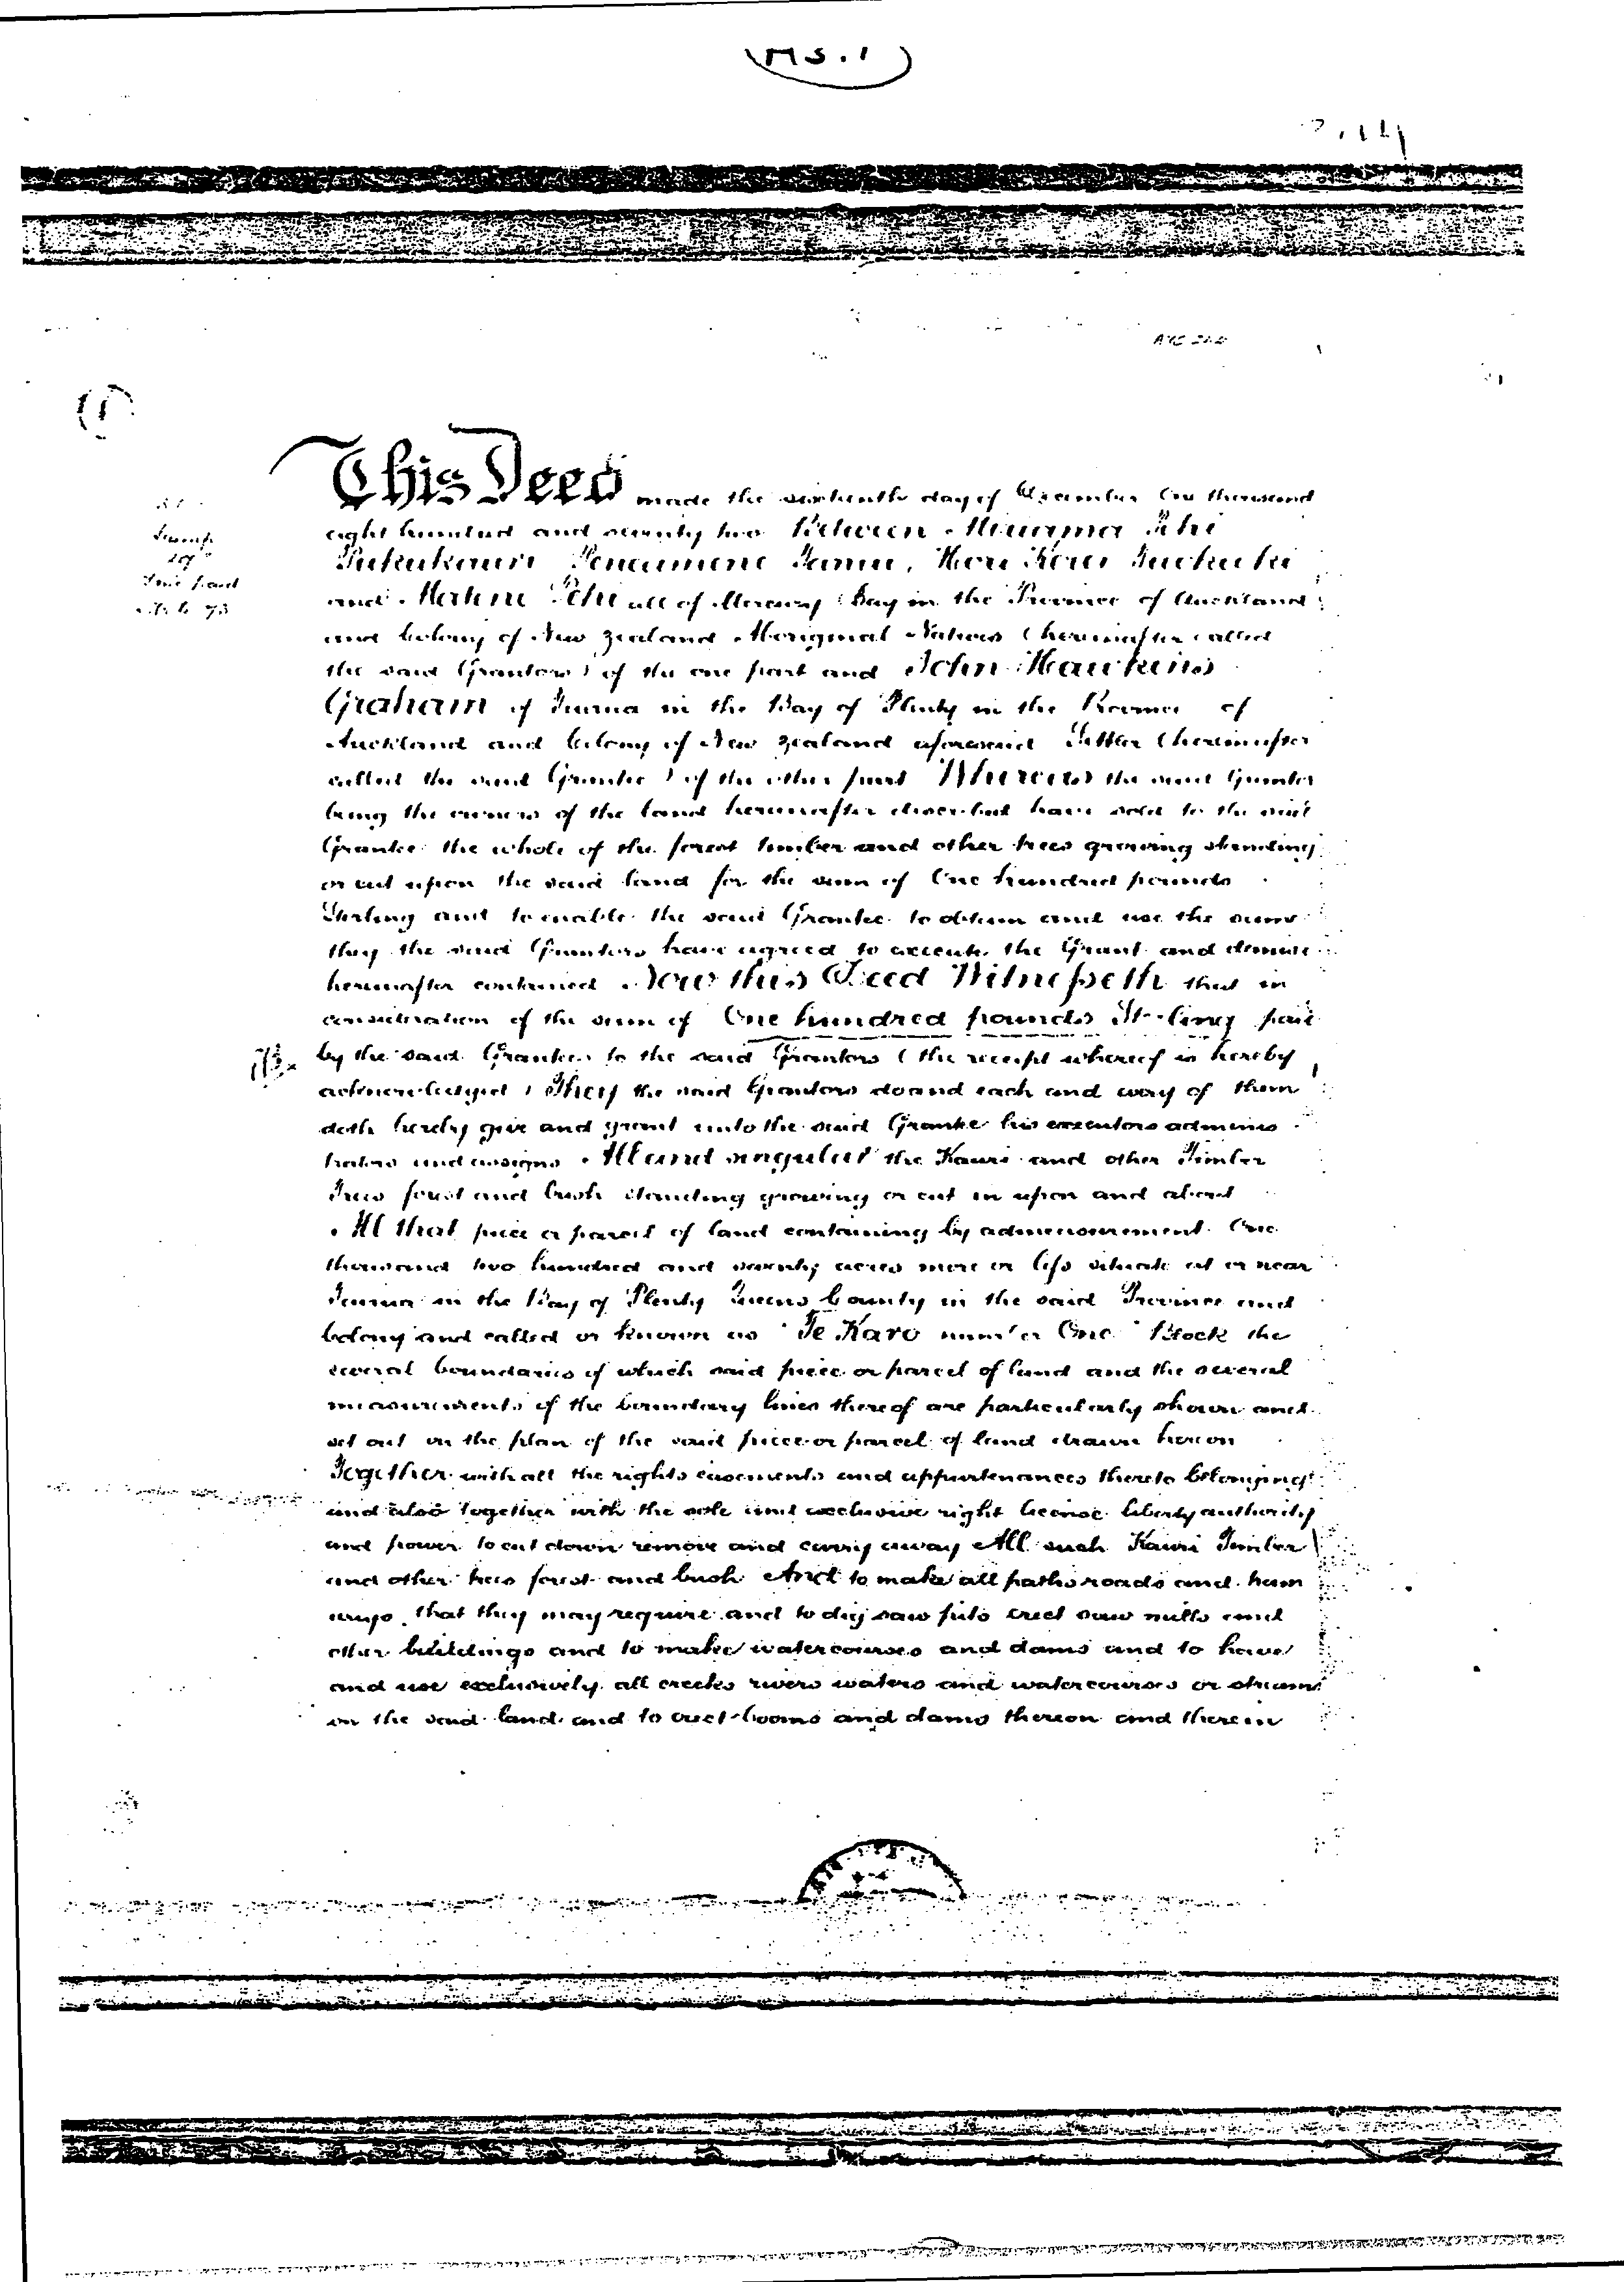 MS.1
This Deed made the sixteenth day of December One thousand
eight hundred and seventy two Between
and all of Mercury Bay in the Province of Auckland
and Colony of New Zealand Aboriginal Natives (hereinafter called
the said Grantors) of the one part and John Hawkins
Graham of Tairua in the Bay of Plenty in the Province of
Auckland and Colony of New Zealand aforesaid Settler (hereinafter
called the said Grantee) of the other part Whereas the said Grantors
being the owners of the land hereinafter described have sold to the said
Grantee the whole of the forest timber and other trees growing standing
or cut upon the said land for the sum of One hundred pounds
Sterling and to enable the said Grantee to obtain and use the same
they the said Grantors have agreed to execute the Grant and demise
hereinafter contained Now this Deed Witnesseth that in
consideration of the sum of One hundred pounds Sterling paid
by the said Grantee to the said Grantors (the receipt whereof is hereby
acknowledged) They the said Grantors do and each and every of them
doth hereby give and grant unto the said Grantee his executors adminis
trators and assigns All and singular the Kauri and other Timber
Trees forest and bush standing growing or cut in upon and about
All that piece or parcel of land containing by admeasurement One
thousand two hundred and seventy acres more or less situate at or near
Tairua in the Bay of Plenty Queens County in the said Province and
Colony and called or known as Te Karo number One Block the
several boundaries of which said piece or parcel of land and the several
measurements of the boundary lines thereof are particularly shown and
set out on the plan of the said piece or parcel of land drawn hereon
Together with all the rights easements and appurtenances thereto belonging
and also together with the sole and exclusive right license liberty authority
and power to cut down remove and carry away All such Kauri Timber
and other trees forest and bush And to make all paths roads and tram
ways that they may require and to dig saw pits erect saw mills and
other buildings and to make watercourses and dams and to have
and use exclusively all creeks rivers waters and watercourses or streams
on the said land and to erect booms and dams thereon and therein